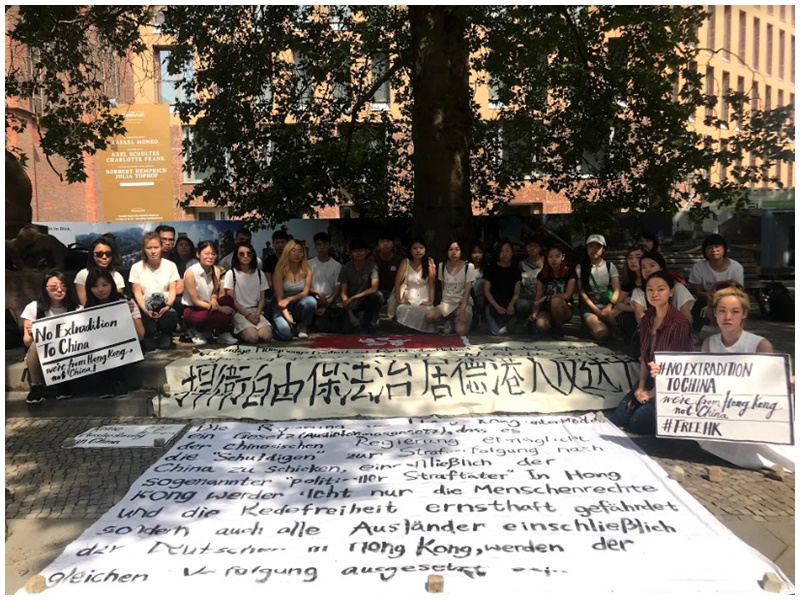 RAFAEL MONEO
AXEL SCHULTES
CHARLOTTE FRANK
NORBERT HEMPRICH
JULIA TOPHOF
No Extradition
To China
we're from Hong Kong,
not China!
#NO EXTRADITION
TO CHINA
we're from Hong Kong
not China
#FREEHK
捍衛自由保法治 居德港人反送中
in China
Die Hong Kong
ein Gesetz (Auslieferungsgesetz), das es
der Chinesischen Regierung ermöglicht
die "Schuldigen" zur Strafverfolgung nach
China zu schicken, einschließlich der
sogenannter "politischer Straftäter" In Hong
Kong werden nicht nur die Menschenrechte
und die Redefreiheit ernsthaft gefährdet
sondern auch alle Ausländer einschließlich
der Deutschen in Hong Kong, werden der
gleichen Verfolgung ausgesetzt